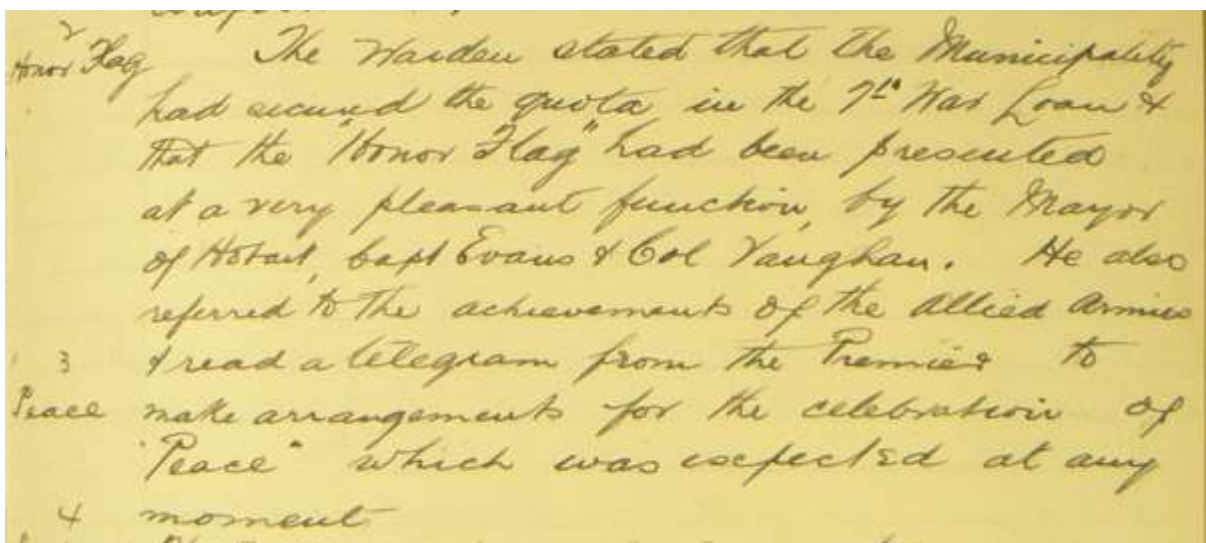 2
Honor Flag The Warden stated that the Municipality
had secured the quota in the 7th War Loan &
that the "Honor Flag" had been presented
at a very pleasant function, by the Mayor
of Hobart, Capt Evans & Col Vaughan. He also
referred to the achievements of the Allied Armies
3 & read a telegram from the Premier to
Peace make arrangements for the celebration of
"Peace" which was expected at any
4 moment